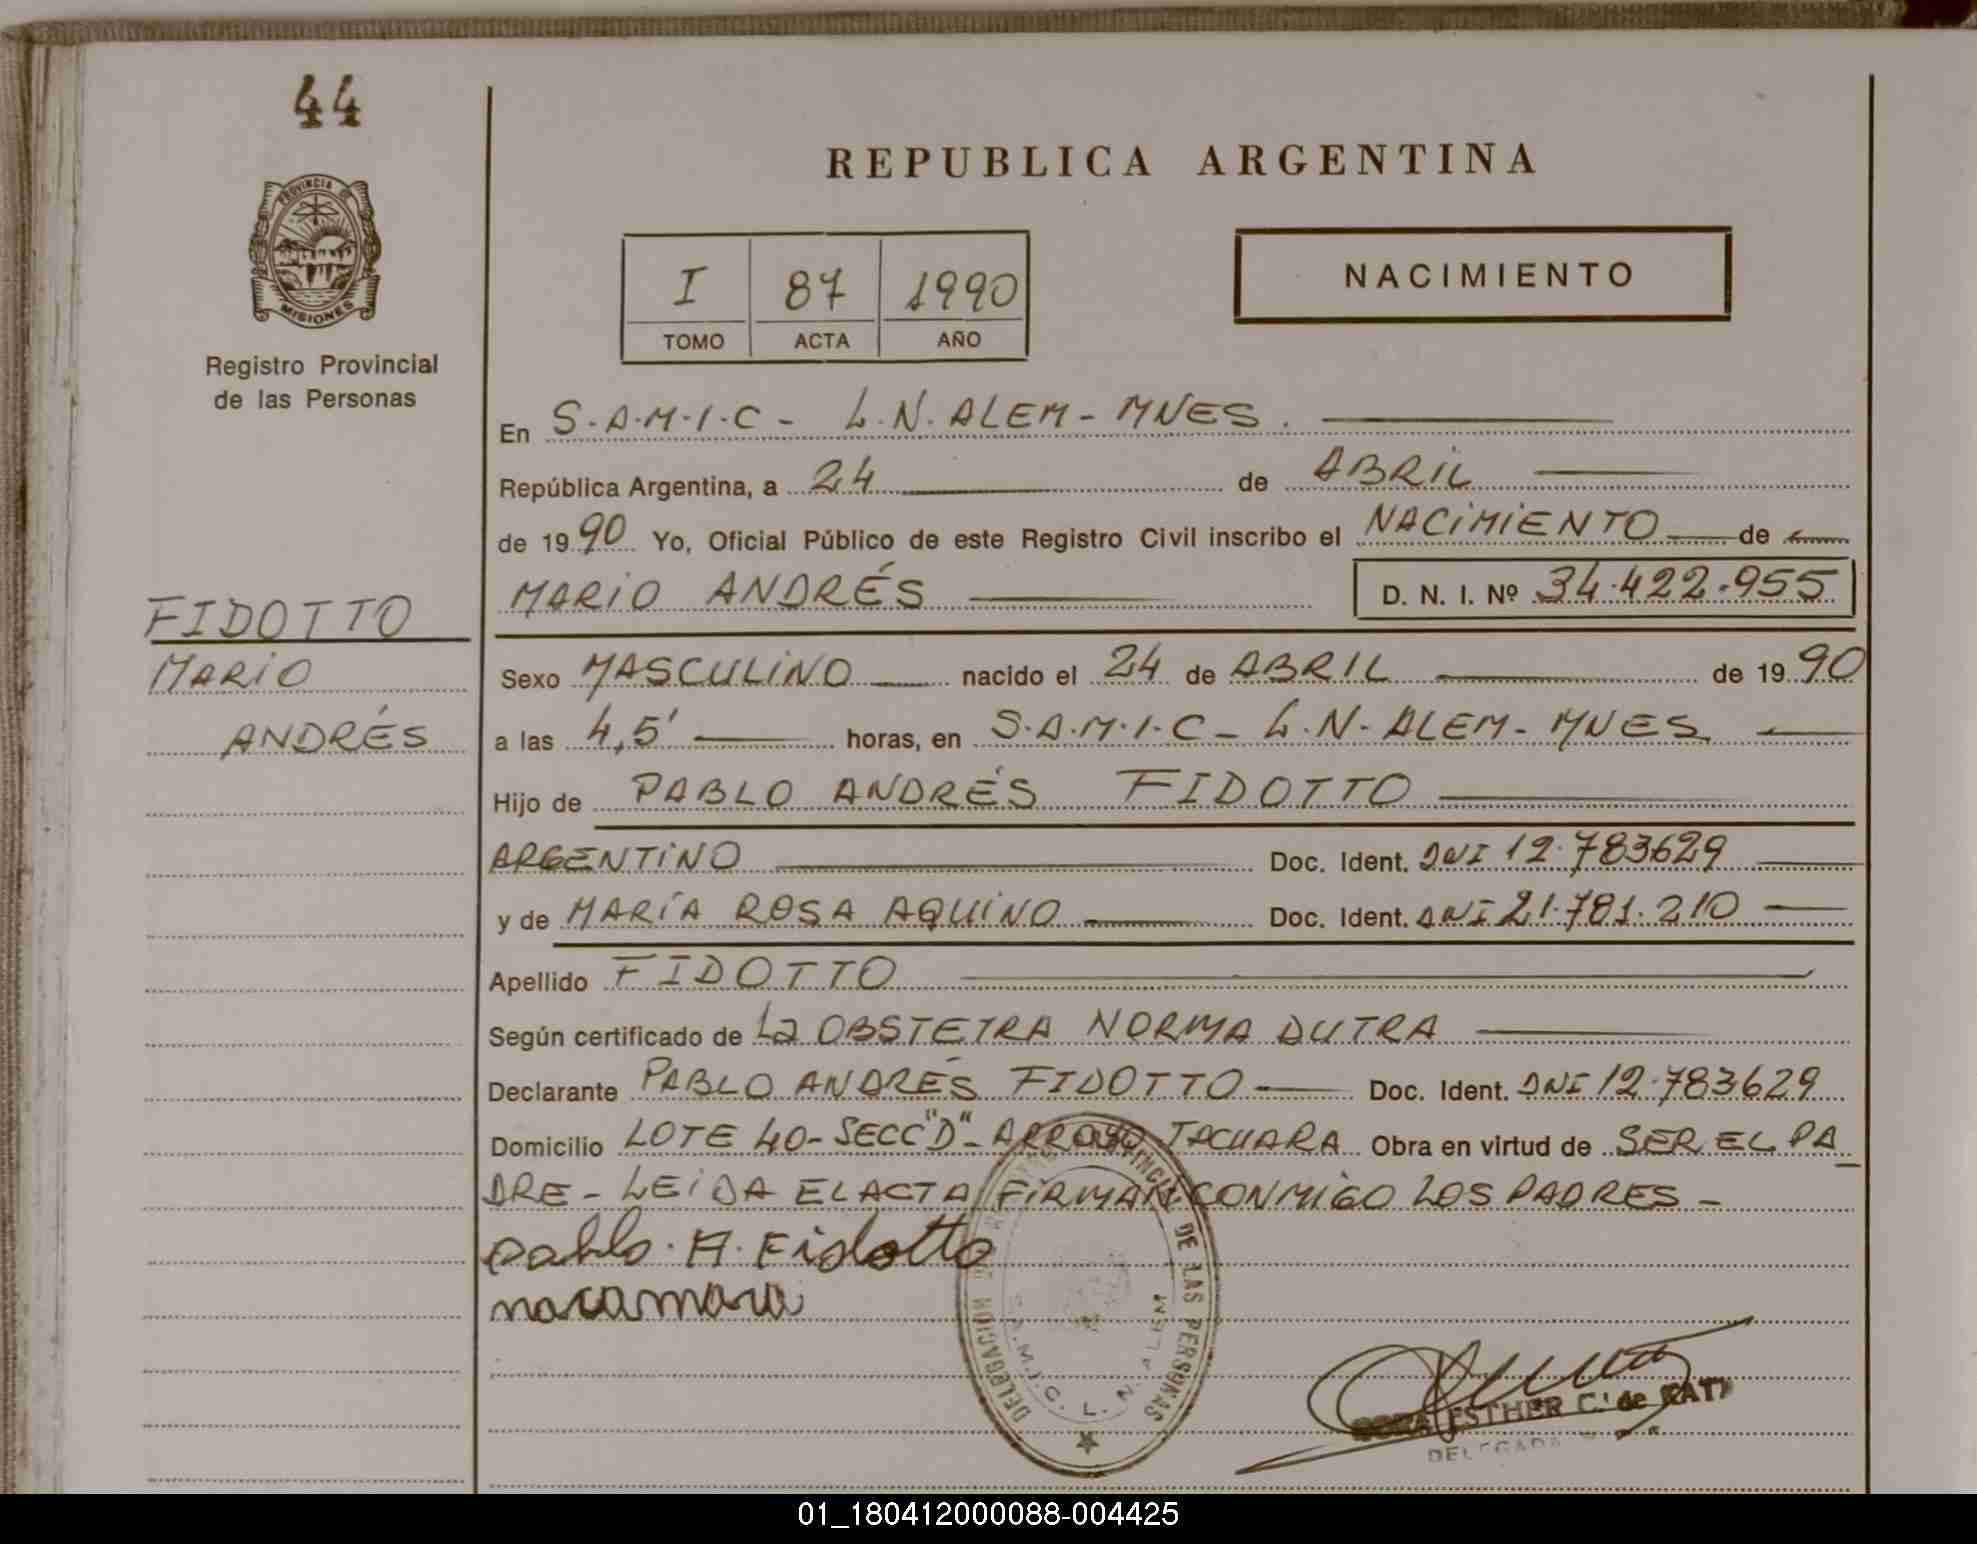 44
REPUBLICA ARGENTINA
PROVINCIA DE
MISIONES
Registro Provincial
de las Personas
I 87 1990
TOMO ACTA AÑO
NACIMIENTO
En S.A.M.I.C - L.N. ALEM - MNES.
República Argentina, a 24 de ABRIL
de 1990 Yo, Oficial Público de este Registro Civil inscribo el NACIMIENTO de
MARIO ANDRÉS D. N. I. Nº 34.422.955
FIDOTTO
MARIO
ANDRÉS
Sexo MASCULINO nacido el 24 de ABRIL de 1990
a las 4,5' horas, en S.A.M.I.C - L.N. ALEM - MNES
Hijo de PABLO ANDRÉS FIDOTTO
ARGENTINO Doc. Ident. DNI 12.783629
y de MARÍA ROSA AQUINO Doc. Ident. DNI 21.781.210
Apellido FIDOTTO
Según certificado de La OBSTETRA NORMA DUTRA
Declarante PABLO ANDRÉS FIDOTTO Doc. Ident. DNI 12.783629
Domicilio LOTE 40 - SECC "D" - ARROYO TACUARA Obra en virtud de SER EL PA
DRE - LEIDA EL ACTA FIRMAN CONMIGO LOS PADRES -
Pablo. A. Fidotto
DELEGACION PROVINCIAL DE LAS PERSONAS
S.A.M.I.C. L. N. ALEM
ESTHER C. de
DELEGADA
01_180412000088-004425